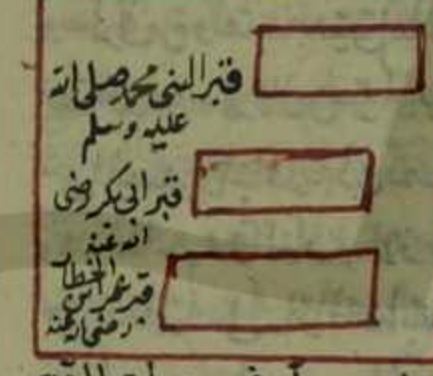 قبر النبي محمد صلى الله
عليه وسلم
قبر ابى بكر رضى
الله عنه
قبر عمر بن
الخطاب
رضى الله عنه